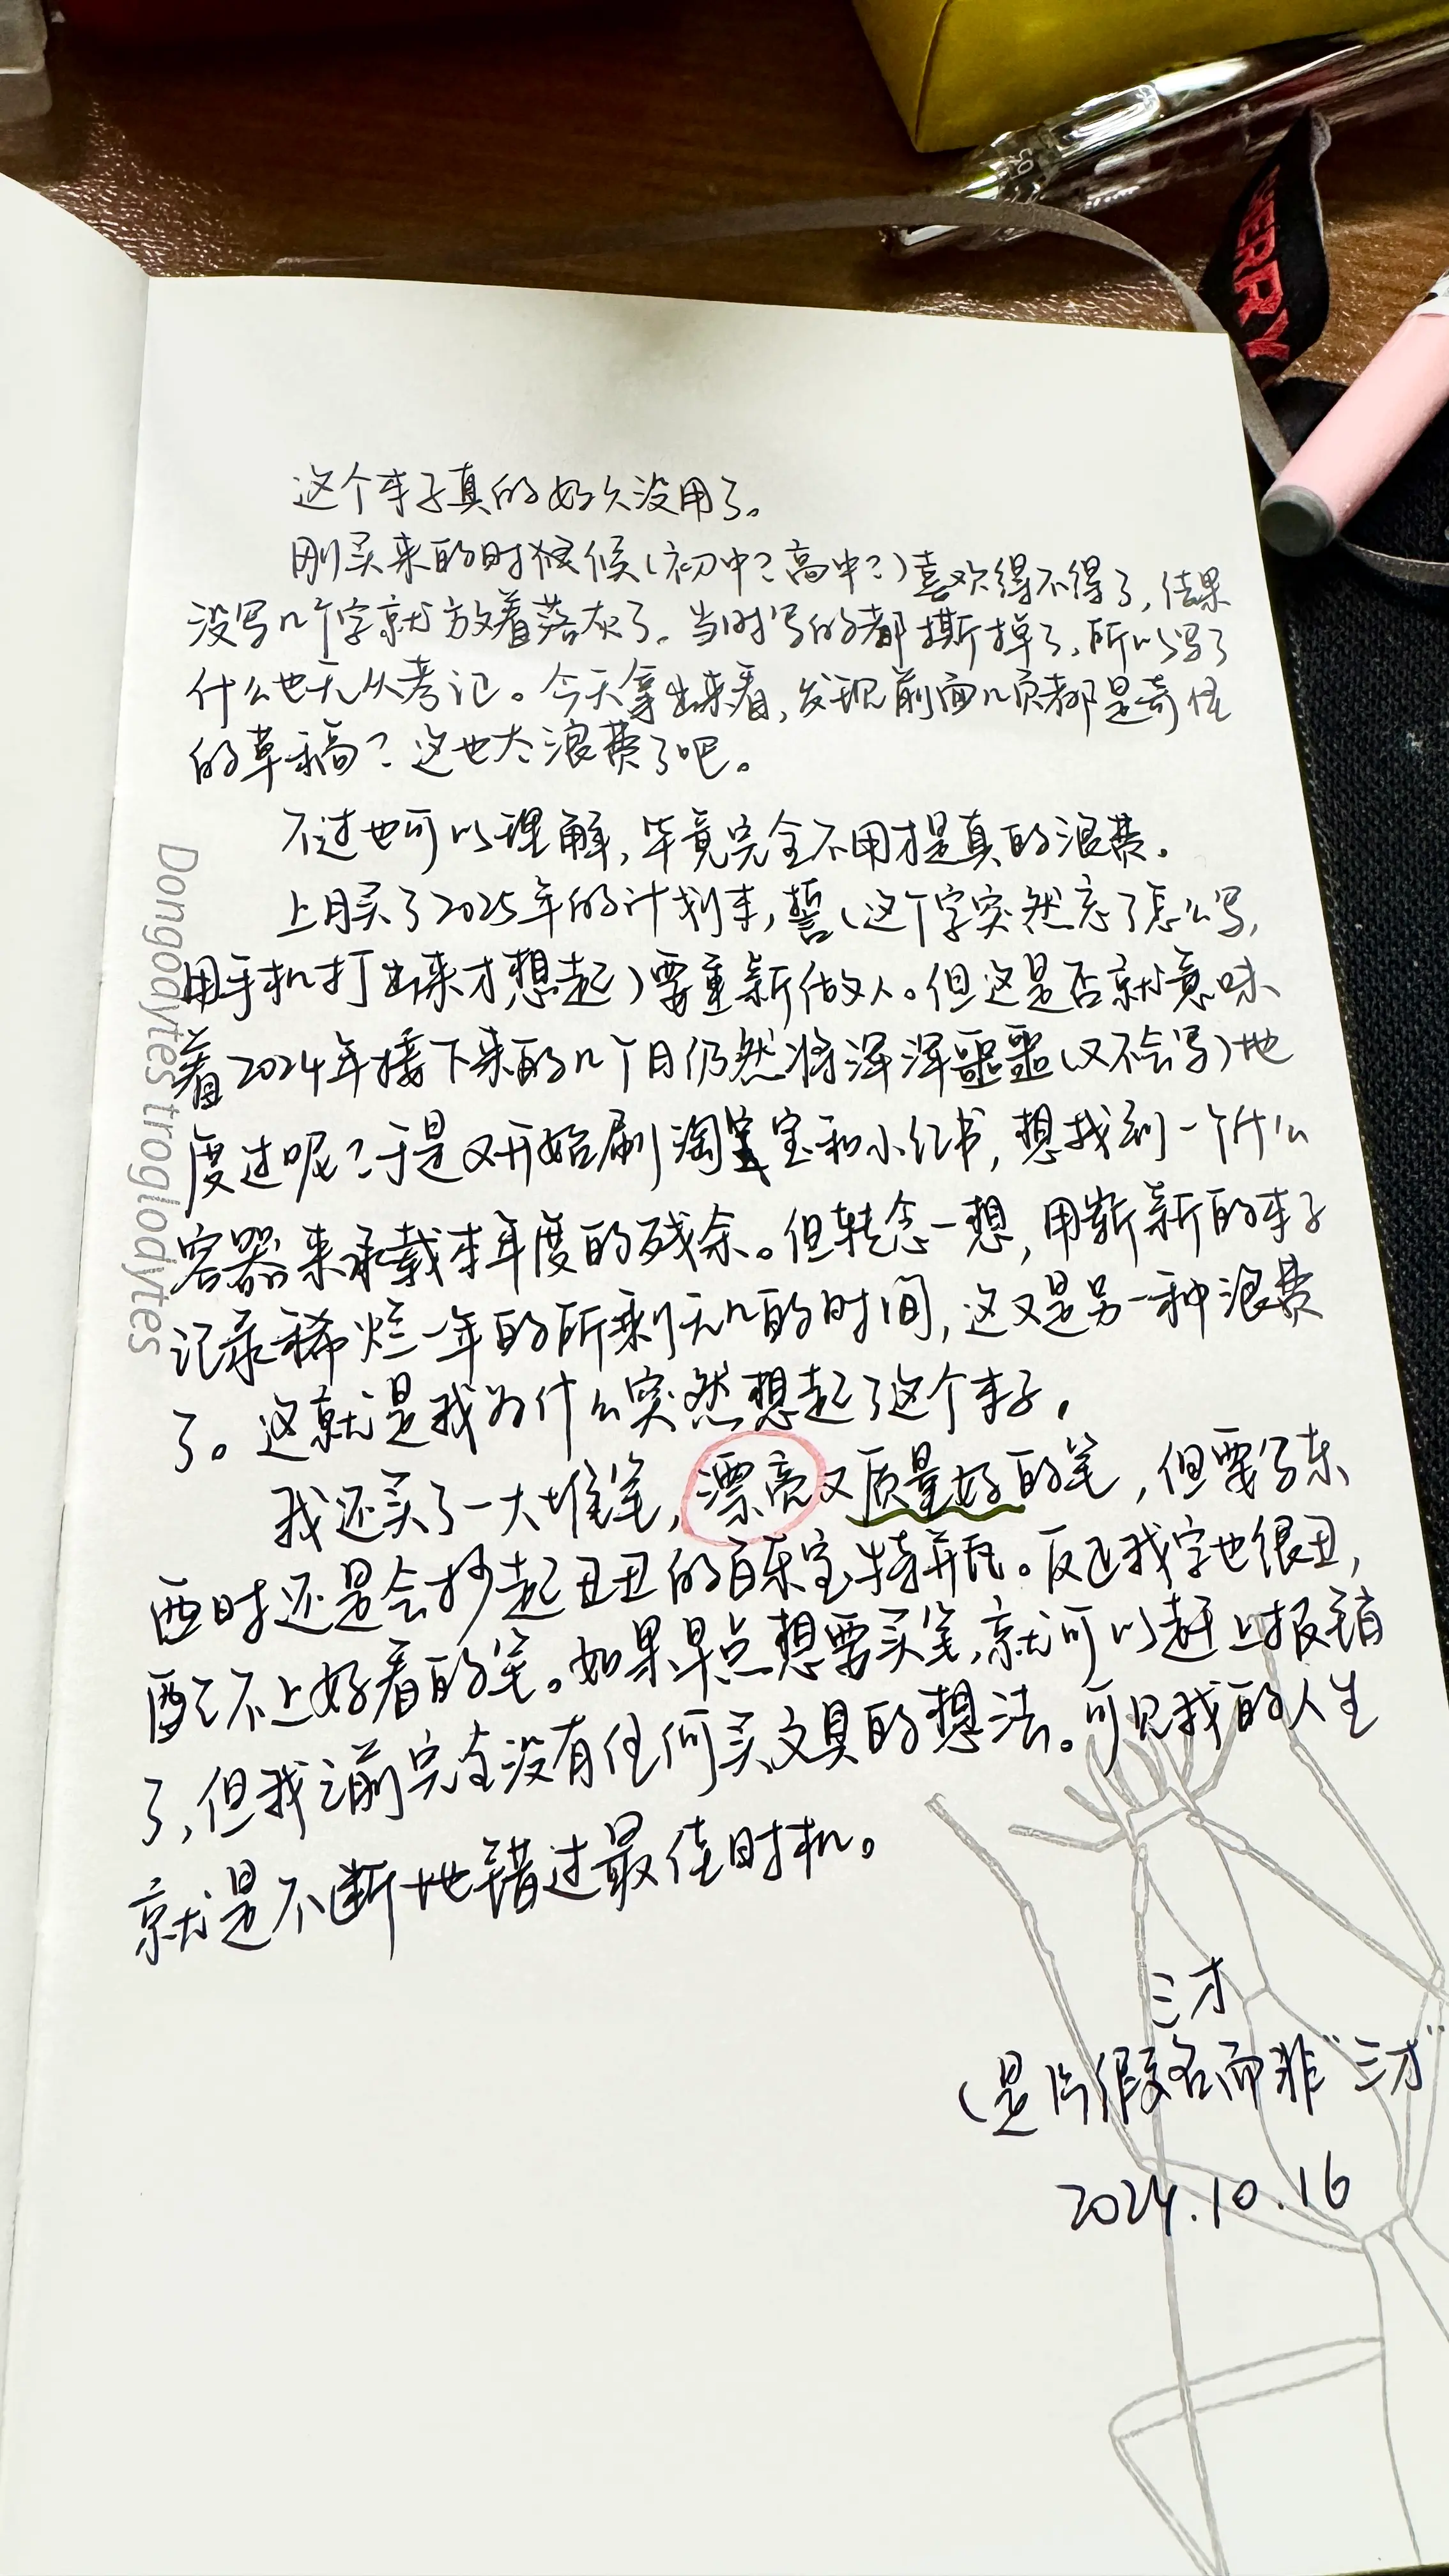 HERRY
这个本子真的好久没用了。
刚买来的时候(初中?高中?)喜欢得不得了,结果
没写几个字就放着落灰了。当时写的都撕掉了,所以写了
什么也无从考记。今天拿出来看,发现前面几页都是奇怪
的草稿?这也太浪费了吧。
不过也可以理解,毕竟完全不用才是真的浪费。
上月买了2025年的计划本,誓(这个字突然忘了怎么写,
用手机打出来才想起)要重新做人。但这是否就意味
着2024年接下来的几个月仍然将浑浑噩噩(又不会写)地
度过呢?于是又开始刷淘宝和小红书,想找到一个什么
容器来承载本年度的残余。但转念一想,用崭新的本子
记录稀烂一年的所剩无几的时间,这又是另一种浪费
了。这就是我为什么突然想起了这个本子。
我还买了一大堆笔,漂亮又质量好的笔,但要写东
西时还是会抄起丑丑的百乐宝特瓶。反正我字也很丑,
配不上好看的笔。如果早点想要买笔,就可以赶上报销
了,但我之前完全没有任何买文具的想法。可见我的人生
就是不断地错过最佳时机。
ミオ
(是片假名而非“三才”
2024.10.16
Dongodytes troglodytes